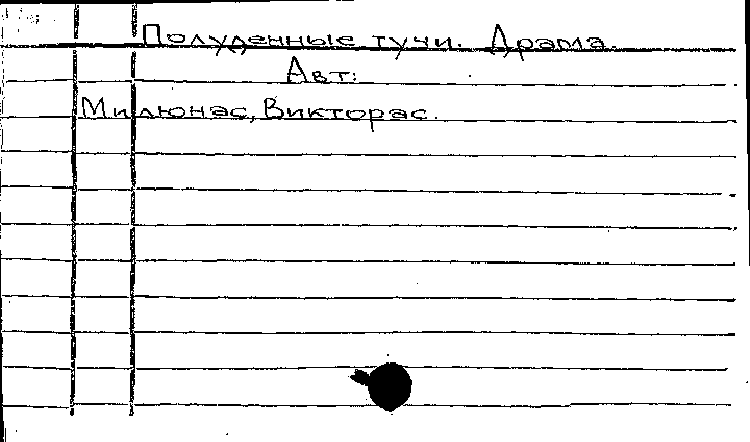 Полуденные тучи. Драма.
Авт:
Милюнас, Викторас.